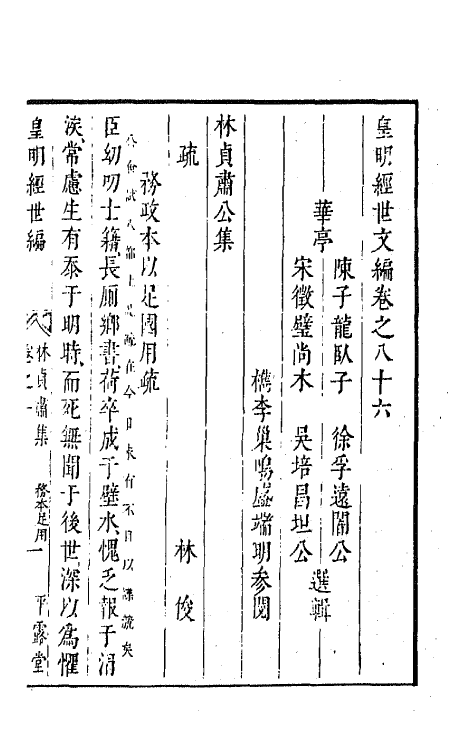 皇明經世文編卷之八十六
華亭
陳子龍臥子　徐孚遠闇公
宋徵璧尚木　吳培昌坦公
選輯
檇李巢鳴盛端明參閱
林貞肅公集
疏　林俊
務政本以足國用疏
臣幼叨士籍長厠鄉書荷卒成于璧水愧乏報于涓
涘常慮生有忝于明時而死無聞于後世深以爲懼
皇明經世編
林貞肅集　務本足用　一　平露堂